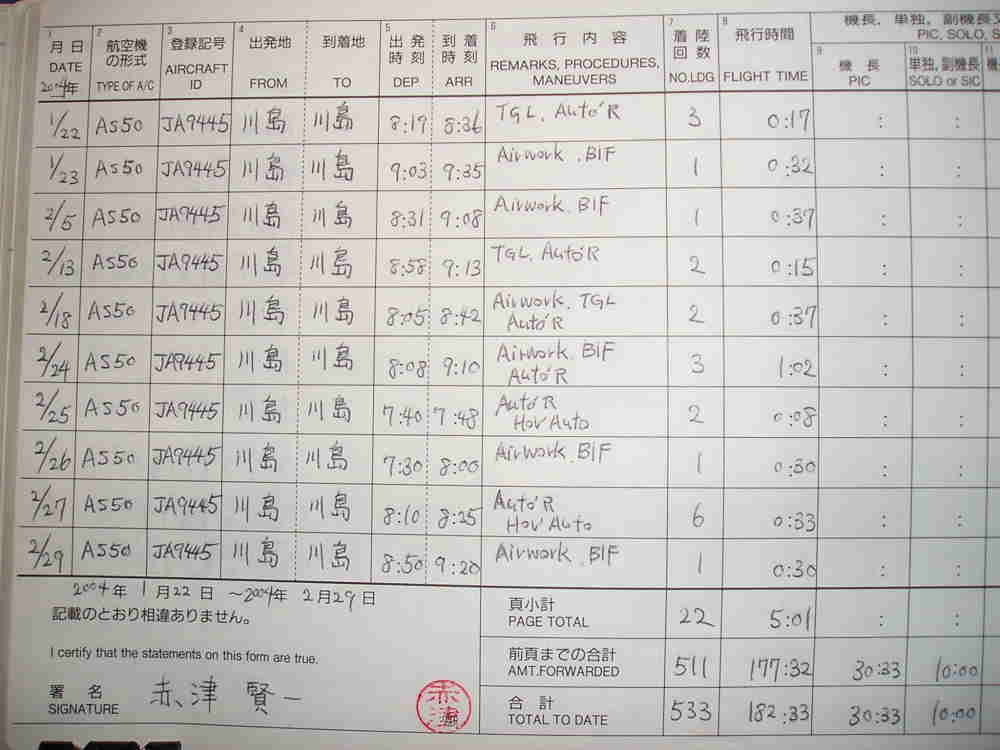 1 月 日 DATE 2004年 2 航空機の形式 TYPE OF A/C 3 登録記号 AIRCRAFT ID 4 出発地 FROM 到着地 TO 5 出発時刻 DEP. 到着時刻 ARR 6 飛行内容 REMARKS, PROCEDURES, MANEUVERS 7 着陸回数 NO.LDG 8 飛行時間 FLIGHT TIME 機長, 単独, 副機長 PIC, SOLO, S 9 機長 PIC 10 単独, 副機長 SOLO or SIC 11
1/22 AS50 JA9445 川島 川島 8:19 8:36 TGL, Auto'R 3 0:17 : :
1/23 AS50 JA9445 川島 川島 9:03 9:35 Airwork, BIF 1 0:32 : :
2/5 AS50 JA9445 川島 川島 8:31 9:08 Airwork, BIF 1 0:37 : :
2/13 AS50 JA9445 川島 川島 8:58 9:13 TGL, Auto'R 2 0:15 : :
2/18 AS50 JA9445 川島 川島 8:05 8:42 Airwork, TGL Auto'R 2 0:37 : :
2/24 AS50 JA9445 川島 川島 8:08 9:10 Airwork, BIF Auto'R 3 1:02 : :
2/25 AS50 JA9445 川島 川島 7:40 7:48 Auto'R Hov'Auto 2 0:08 : :
2/26 AS50 JA9445 川島 川島 7:30 8:00 Airwork, BIF 1 0:30 : :
2/27 AS50 JA9445 川島 川島 8:10 8:25 Auto'R Hov'Auto 6 0:33 : :
2/29 AS50 JA9445 川島 川島 8:50 9:20 Airwork, BIF 1 0:30 : :
2004年 1月22日 ～2004年 2月29日
記載のとおり相違ありません。
I certify that the statements on this form are true.
署名 SIGNATURE 赤津 賢一 赤津
頁小計 PAGE TOTAL 22 5:01 : :
前頁までの合計 AMT.FORWARDED 511 177:32 30:33 10:00
合計 TOTAL TO DATE 533 182:33 30:33 10:00